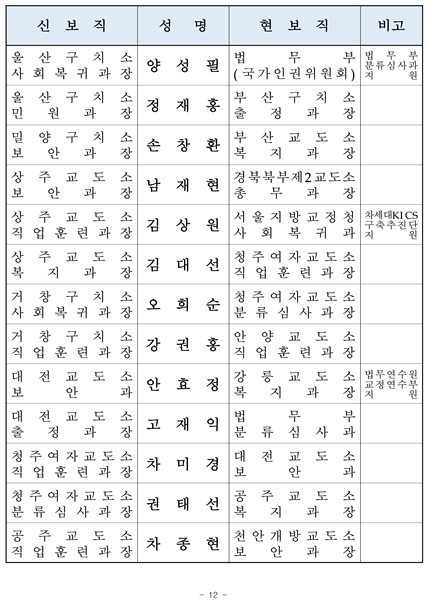 신 보 직 성 명 현 보 직 비고
울 산 구 치 소
사 회 복 귀 과 장
양 성 필
법 무 부
(국가인권위원회)
법 무 부
분류심사과
지 원
울 산 구 치 소
민 원 과 장
정 재 홍
부 산 구 치 소
출 정 과 장
밀 양 구 치 소
보 안 과 장
손 창 환
부 산 교 도 소
복 지 과 장
상 주 교 도 소
보 안 과 장
남 재 현
경북북부제2교도소
총 무 과 장
상 주 교 도 소
직 업 훈 련 과 장
김 상 원
서 울 지 방 교 정 청
사 회 복 귀 과
차세대KICS
구축추진단
지 원
상 주 교 도 소
복 지 과 장
김 대 선
청 주 여 자 교 도 소
직 업 훈 련 과 장
거 창 구 치 소
사 회 복 귀 과 장
오 희 순
청 주 여 자 교 도 소
분 류 심 사 과 장
거 창 구 치 소
직 업 훈 련 과 장
강 권 홍
안 양 교 도 소
직 업 훈 련 과 장
대 전 교 도 소
보 안 과
안 효 정
강 릉 교 도 소
복 지 과 장
법무연수원
교정연수부
지 원
대 전 교 도 소
출 정 과 장
고 재 익
법 무 부
분 류 심 사 과
청 주 여 자 교 도 소
직 업 훈 련 과 장
차 미 경
대 전 교 도 소
보 안 과
청 주 여 자 교 도 소
분 류 심 사 과 장
권 태 선
공 주 교 도 소
복 지 과 장
공 주 교 도 소
직 업 훈 련 과 장
차 종 현
천 안 개 방 교 도 소
보 안 과 장
- 12 -